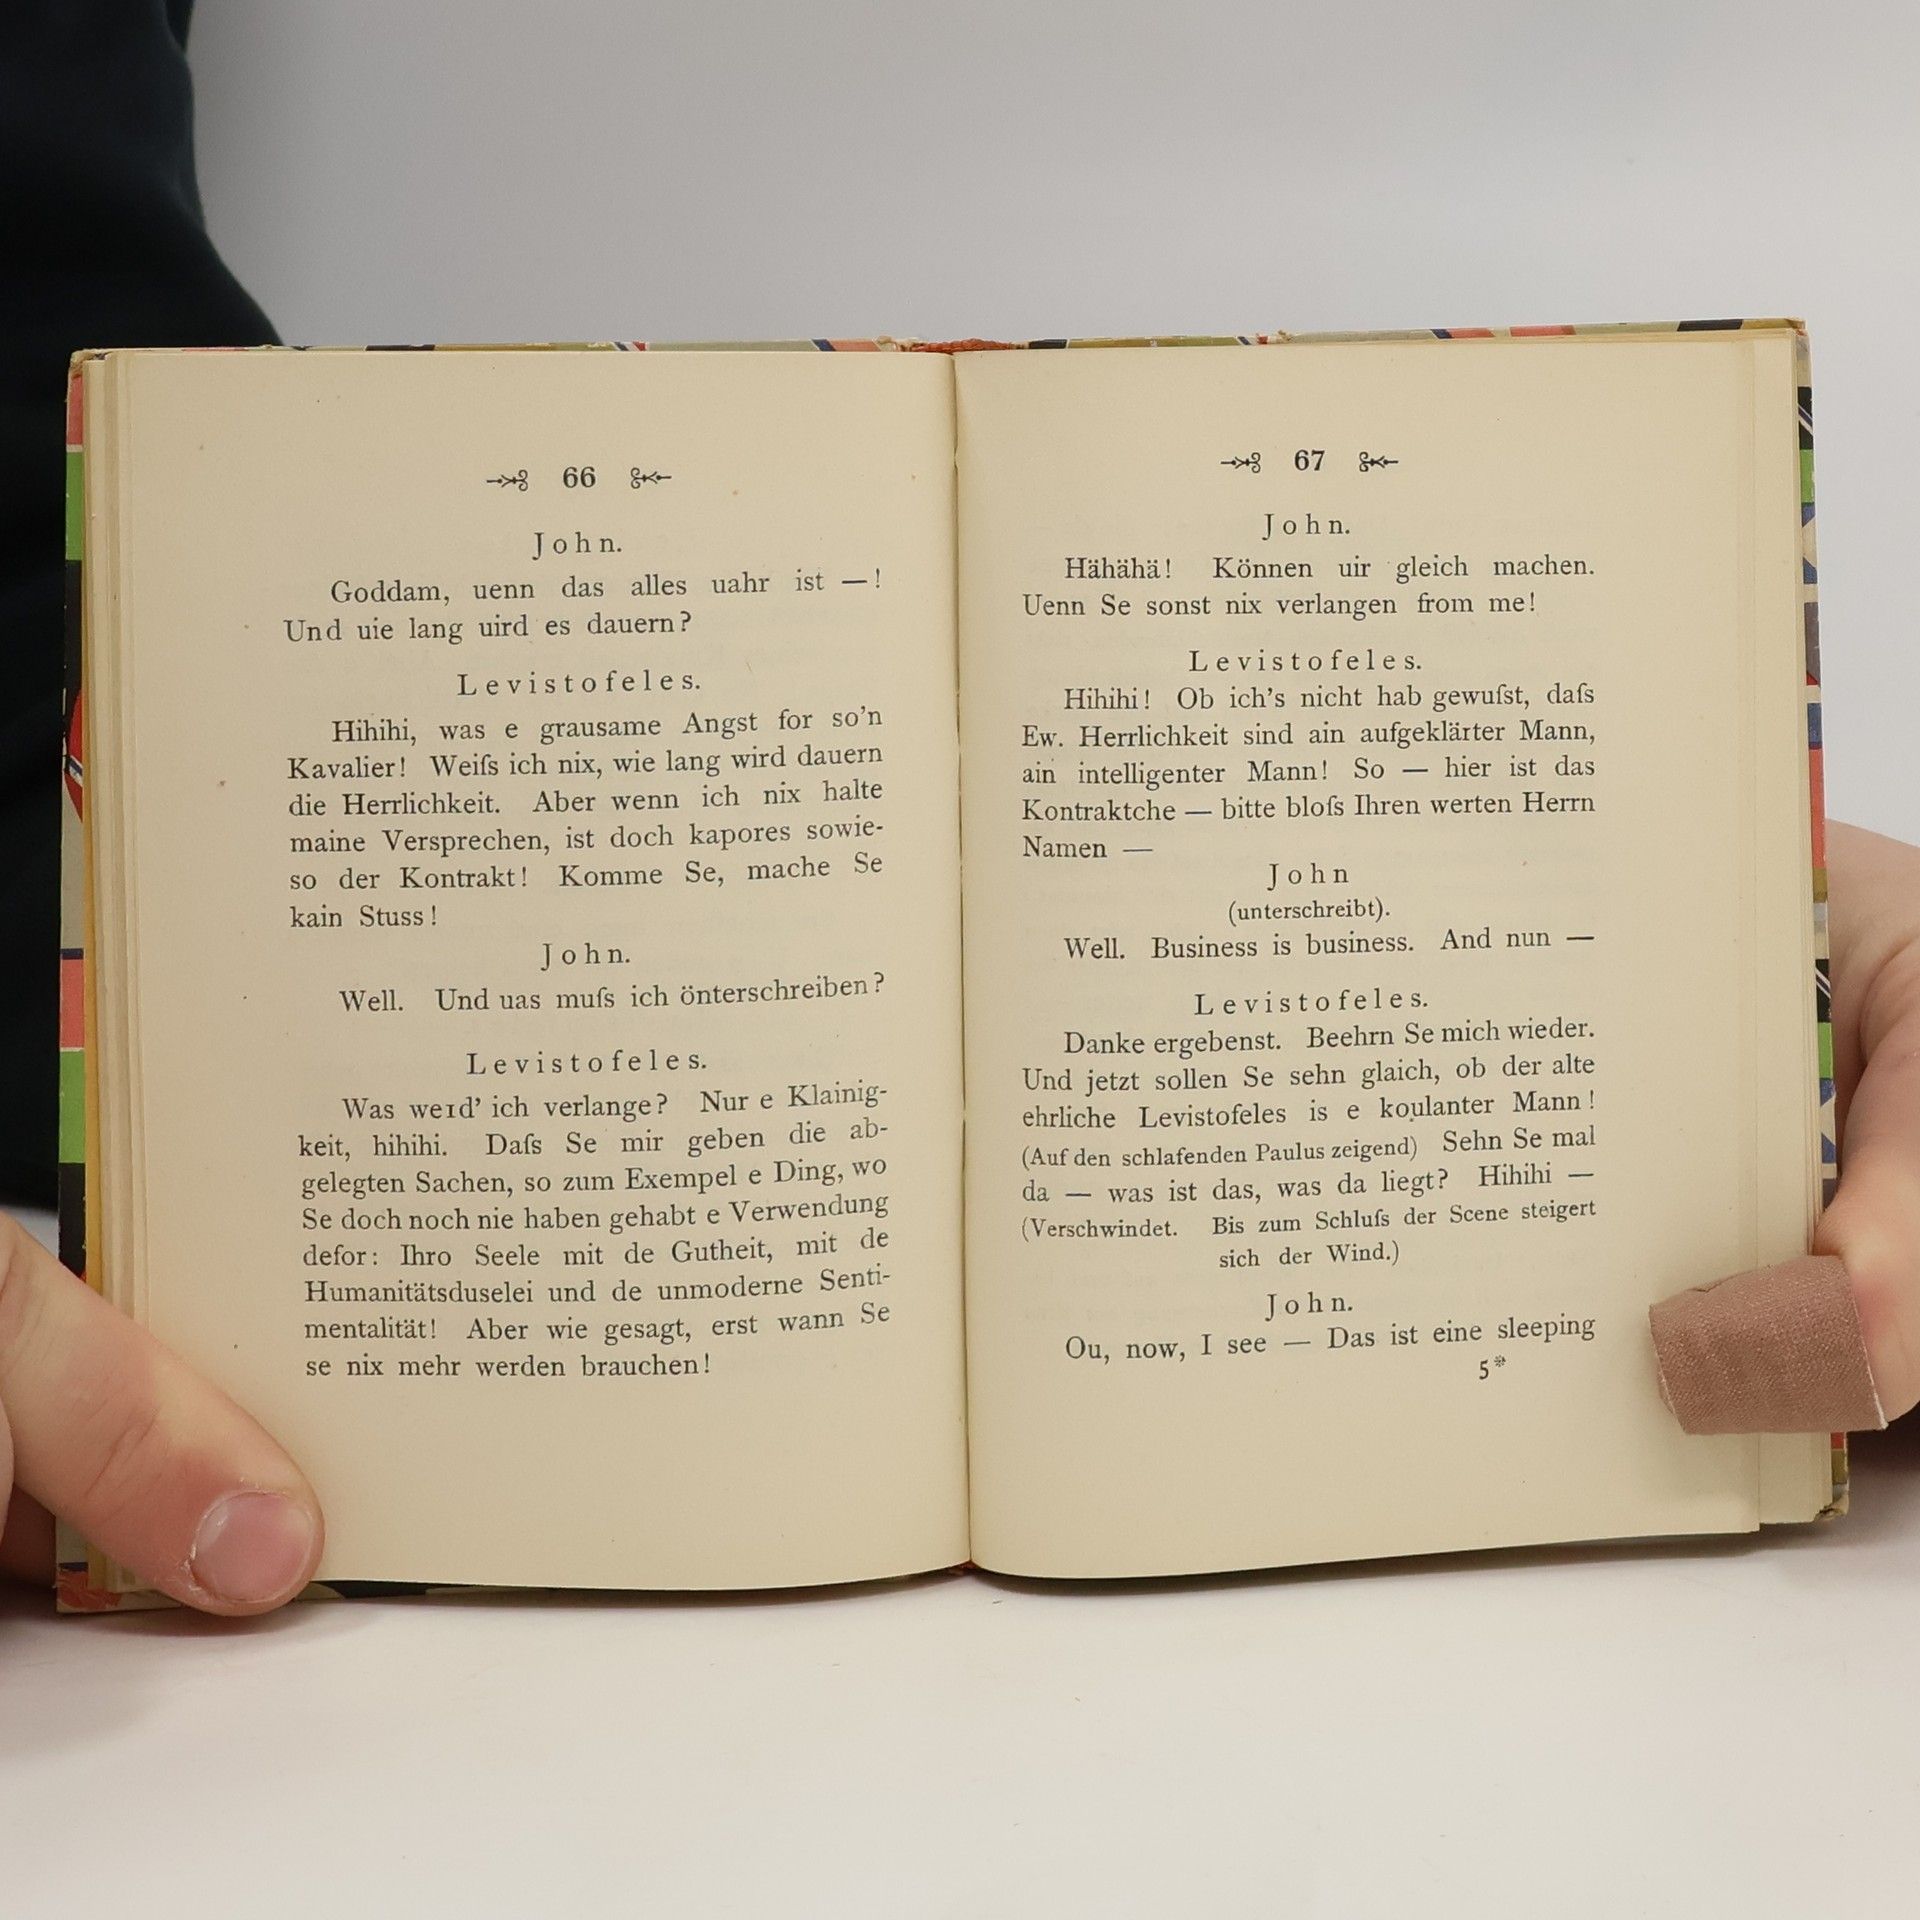 66
John.
Goddam, uenn das alles uahr ist —!
Und uie lang uird es dauern?
Levistofeles.
Hihihi, was e grausame Angst for so'n
Kavalier! Weiſs ich nix, wie lang wird dauern
die Herrlichkeit. Aber wenn ich nix halte
maine Versprechen, ist doch kapores sowie-
so der Kontrakt! Komme Se, mache Se
kain Stuss!
John.
Well. Und uas muſs ich önterschreiben?
Levistofeles.
Was werd' ich verlange? Nur e Klainig-
keit, hihihi. Daſs Se mir geben die ab-
gelegten Sachen, so zum Exempel e Ding, wo
Se doch noch nie haben gehabt e Verwendung
defor: Ihro Seele mit de Gutheit, mit de
Humanitätsduselei und de unmoderne Senti-
mentalität! Aber wie gesagt, erst wann Se
se nix mehr werden brauchen!
67
John.
Hähähä! Können uir gleich machen.
Uenn Se sonst nix verlangen from me!
Levistofeles.
Hihihi! Ob ich's nicht hab gewuſst, daſs
Ew. Herrlichkeit sind ain aufgeklärter Mann,
ain intelligenter Mann! So — hier ist das
Kontraktche — bitte bloſs Ihren werten Herrn
Namen —
John
(unterschreibt).
Well. Business is business. And nun —
Levistofeles.
Danke ergebenst. Beehrn Se mich wieder.
Und jetzt sollen Se sehn glaich, ob der alte
ehrliche Levistofeles is e koulanter Mann!
(Auf den schlafenden Paulus zeigend) Sehn Se mal
da — was ist das, was da liegt? Hihihi —
(Verschwindet. Bis zum Schluſs der Scene steigert
sich der Wind.)
John.
Ou, now, I see — Das ist eine sleeping
5*